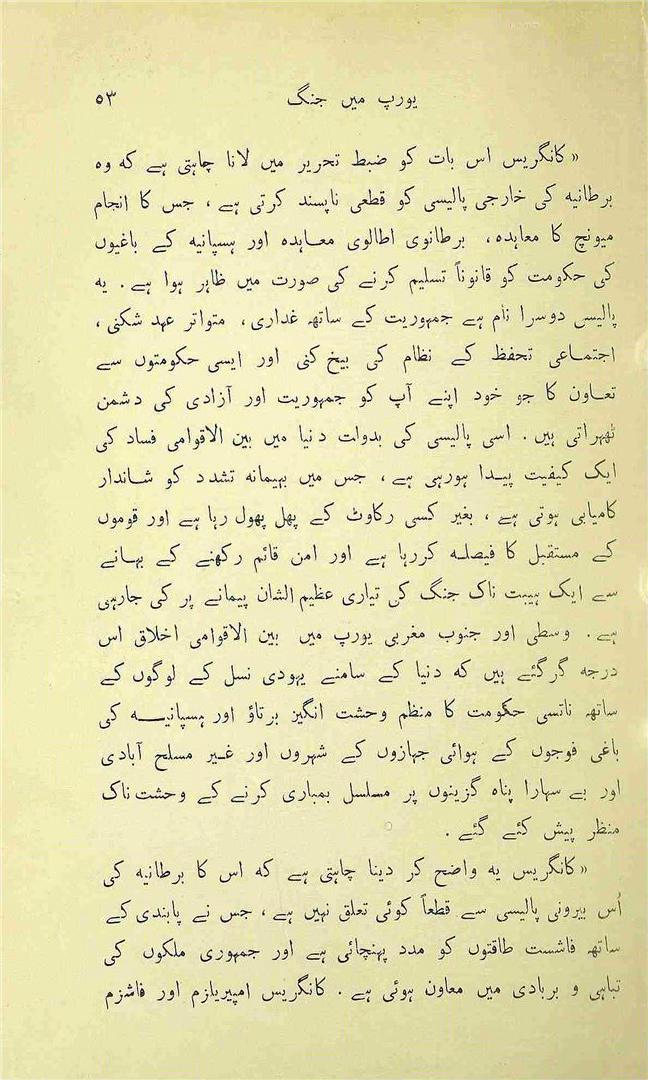 یورپ میں جنگ ٥٣
«کانگریس اس بات کو ضبط تحریر میں لانا چاہتی ہے کہ وہ
برطانیہ کی خارجی پالیسی کو قطعی ناپسند کرتی ہے، جس کا انجام
میونچ کا معاہدہ، برطانوی اطالوی معاہدہ اور ہسپانیہ کے باغیوں
کی حکومت کو قانوناً تسلیم کرنے کی صورت میں ظاہر ہوا ہے. یہ
پالیسی دوسرا نام ہے جمہوریت کے ساتھ غداری، متواتر عہد شکنی،
اجتماعی تحفظ کے نظام کی بیخ کنی اور ایسی حکومتوں سے
تعاون کا جو خود اپنے آپ کو جمہوریت اور آزادی کی دشمن
ٹھہراتی ہیں. اسی پالیسی کی بدولت دنیا میں بین الاقوامی فساد کی
ایک کیفیت پیدا ہورہی ہے، جس میں بہیمانہ تشدد کو شاندار
کامیابی ہوتی ہے، بغیر کسی رکاوٹ کے پھل پھول رہا ہے اور قوموں
کے مستقبل کا فیصلہ کررہا ہے اور امن قائم رکھنے کے بہانے
سے ایک ہیبت ناک جنگ کی تیاری عظیم الشان پیمانے پر کی جارہی
ہے. وسطی اور جنوب مغربی یورپ میں بین الاقوامی اخلاق اس
درجہ گرگئے ہیں کہ دنیا کے سامنے یہودی نسل کے لوگوں کے
ساتھ ناتسی حکومت کا منظم وحشت انگیز برتاؤ اور ہسپانیہ کی
باغی فوجوں کے ہوائی جہازوں کے شہروں اور غیر مسلح آبادی
اور بے سہارا پناہ گزینوں پر مسلسل بمباری کرنے کے وحشت ناک
منظر پیش کئے گئے.
«کانگریس یہ واضح کر دینا چاہتی ہے کہ اس کا برطانیہ کی
اُس بیرونی پالیسی سے قطعاً کوئی تعلق نہیں ہے، جس نے پابندی کے
ساتھ فاشست طاقتوں کو مدد پہنچائی ہے اور جمہوری ملکوں کی
تباہی و بربادی میں معاون ہوئی ہے. کانگریس امپیریلزم اور فاشزم